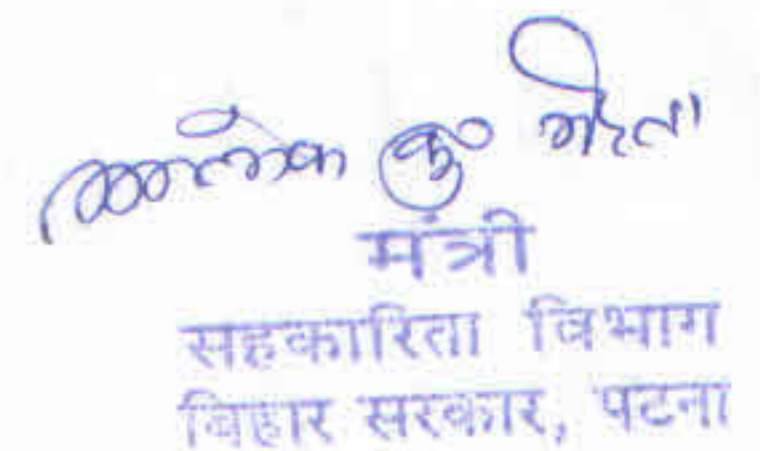 आलोक कु० मेहता
मंत्री
सहकारिता विभाग
बिहार सरकार, पटना